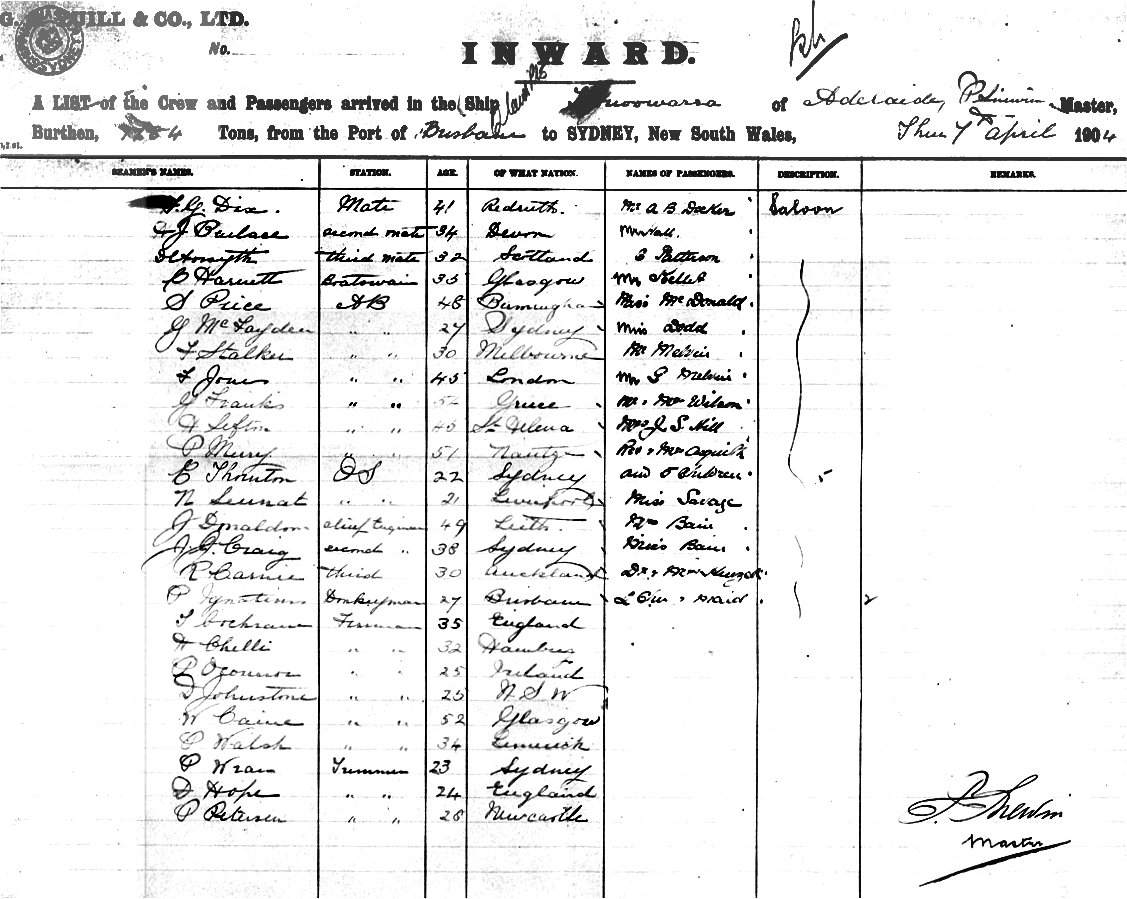 & CO., LTD.
No.
INWARD.
A LIST of the Crew and Passengers arrived in the Ship of Adelaide, Master,
Burthen, Tons, from the Port of Brisbane to SYDNEY, New South Wales, 7th April 1904
SEAMEN'S NAMES. STATION. AGE. OF WHAT NATION. NAMES OF PASSENGERS. DESCRIPTION. REMARKS.
G. Dix. Mate 41 Redruth. Mr A B Decker Saloon
second mate 34 Devon
D Forsyth third mate 32 Scotland Patterson
Boatswain 35 Glasgow
S Price AB 48 Miss McDonald
McFayden " " 27 Sydney Miss Dodd
F Stalker " " 30 Melbourne Mr Melvin
F Jones " " 45 London Mr S Melvin
G Franks " " 52 Greece Mr & Mrs Wilson
H Sefton " " 45 St Helena Mrs J S Hill
P " " 51 Rev & Mrs
E Thornton OS 22 Sydney and 5 children
N " " 21 Liverpool Miss Savage
J Donaldson chief Engineer 49 Leith Bain
J. G. Craig second " 38 Sydney Miss Bain
R Carnie third 30 Auckland Dr & Mrs
P Ignatius Donkeyman 27 Brisbane & maid
T Cochrane Fireman 35 England
H Chelli " " 32
P Oconnor " " 25 Ireland
D Johnstone " " 25 N S W
W Caine " " 52 Glasgow
P Walsh " " 34 Limerick
P Wran Trimmer 23 Sydney
D Hope " " 24 England
P Petersen " " 26 Newcastle
Master